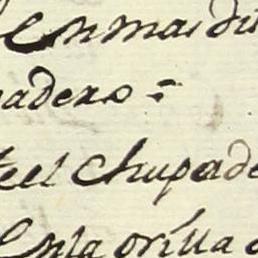 en mas di
adero =
te el chupade
en la orilla